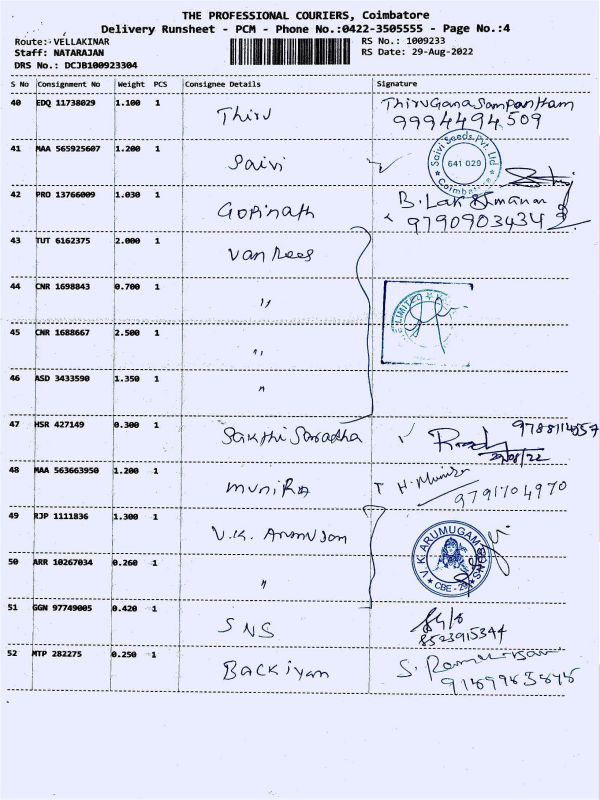 THE PROFESSIONAL COURIERS, Coimbatore
Delivery Runsheet - PCM - Phone No.:0422-3505555 - Page No.:4
Route:-VELLAKINAR RS No.: 1009233
Staff: NATARAJAN RS Date: 29-Aug-2022
DRS No.: DCJB100923304
S No Consignment No Weight PCS Consignee Details Signature
40 EDQ 11738029 1.100 1 Thiru ThiruGana Sampantham
9994494509
41 MAA 565925607 1.200 1 Saivi Saivi Seeds Pvt. Ltd
641 029
Coimbatore
42 PRO 13766009 1.030 1 Gopinath B. Lakshmanan
9790903434
43 TUT 6162375 2.000 1 Van Rees
44 CNR 1698843 0.700 1 " LIMITED
45 CNR 1688667 2.500 1 "
46 ASD 3433590 1.350 1 "
47 HSR 427149 0.300 1 Sakthi Saradha
29/08/22
48 MAA 563663950 1.200 1 Munira H. Munira
9791704970
49 RJP 1111836 1.300 1 V.K. Arumugam V.K. ARUMUGAM
50 ARR 10267034 0.260 1 " SNACKS
CBE - 29
51 GGN 97749005 0.420 1 SNS
8523915344
52 MTP 282275 0.250 1 Backiyam